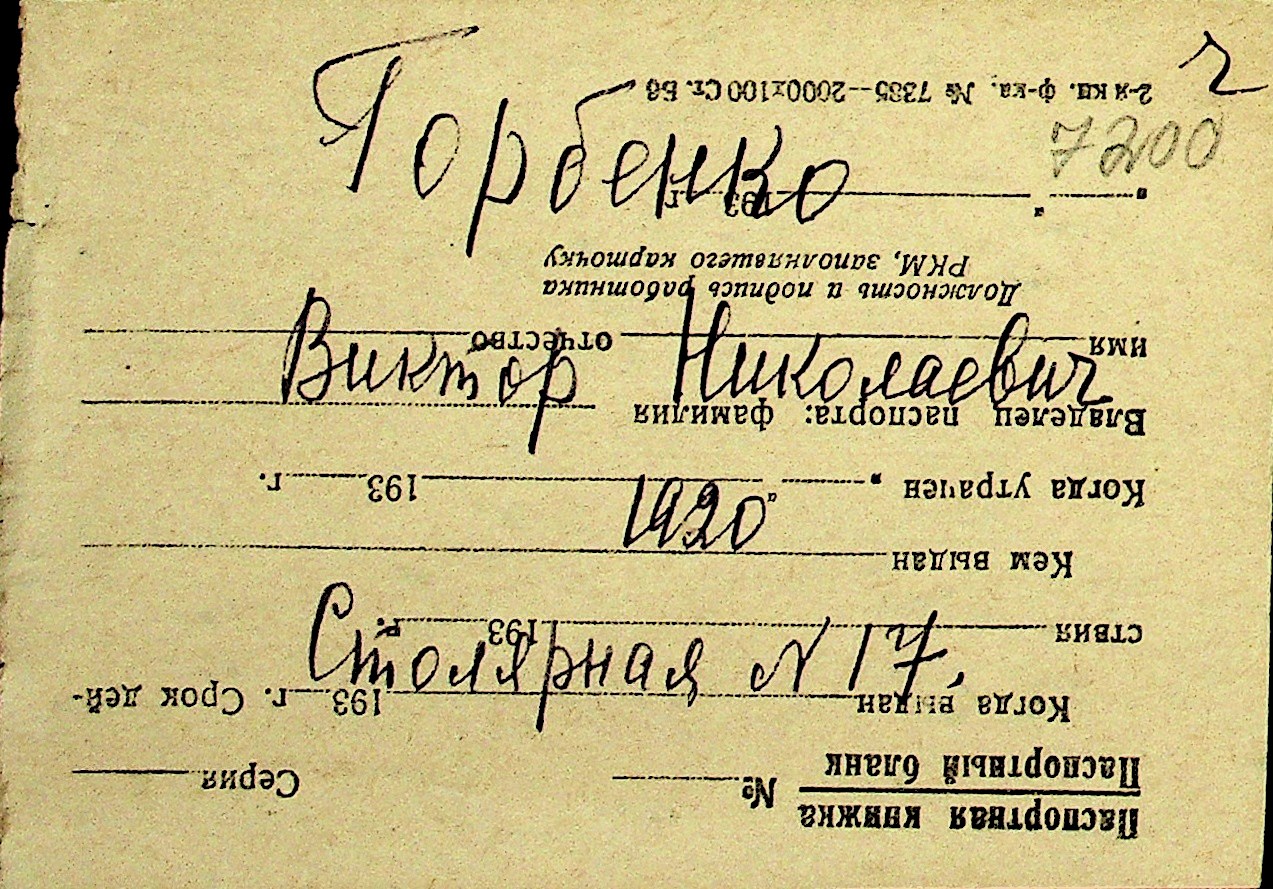 Горбенко
Виктор Николаевич
1920
Столярная N 17.
7200
Паспортная книжка
Паспортный бланк
№ Серия
Когда выдан 193 г. Срок дей-
ствия 193 г.
Кем выдан
Когда утрачен „ “ 193 г.
Владелец паспорта: фамилия
имя отчество
Должность и подпись работника
РКМ, заполнявшего карточку
„ “ 193 г.
2-я кп. ф-ка. № 7385--2000х100 Ст. Бб